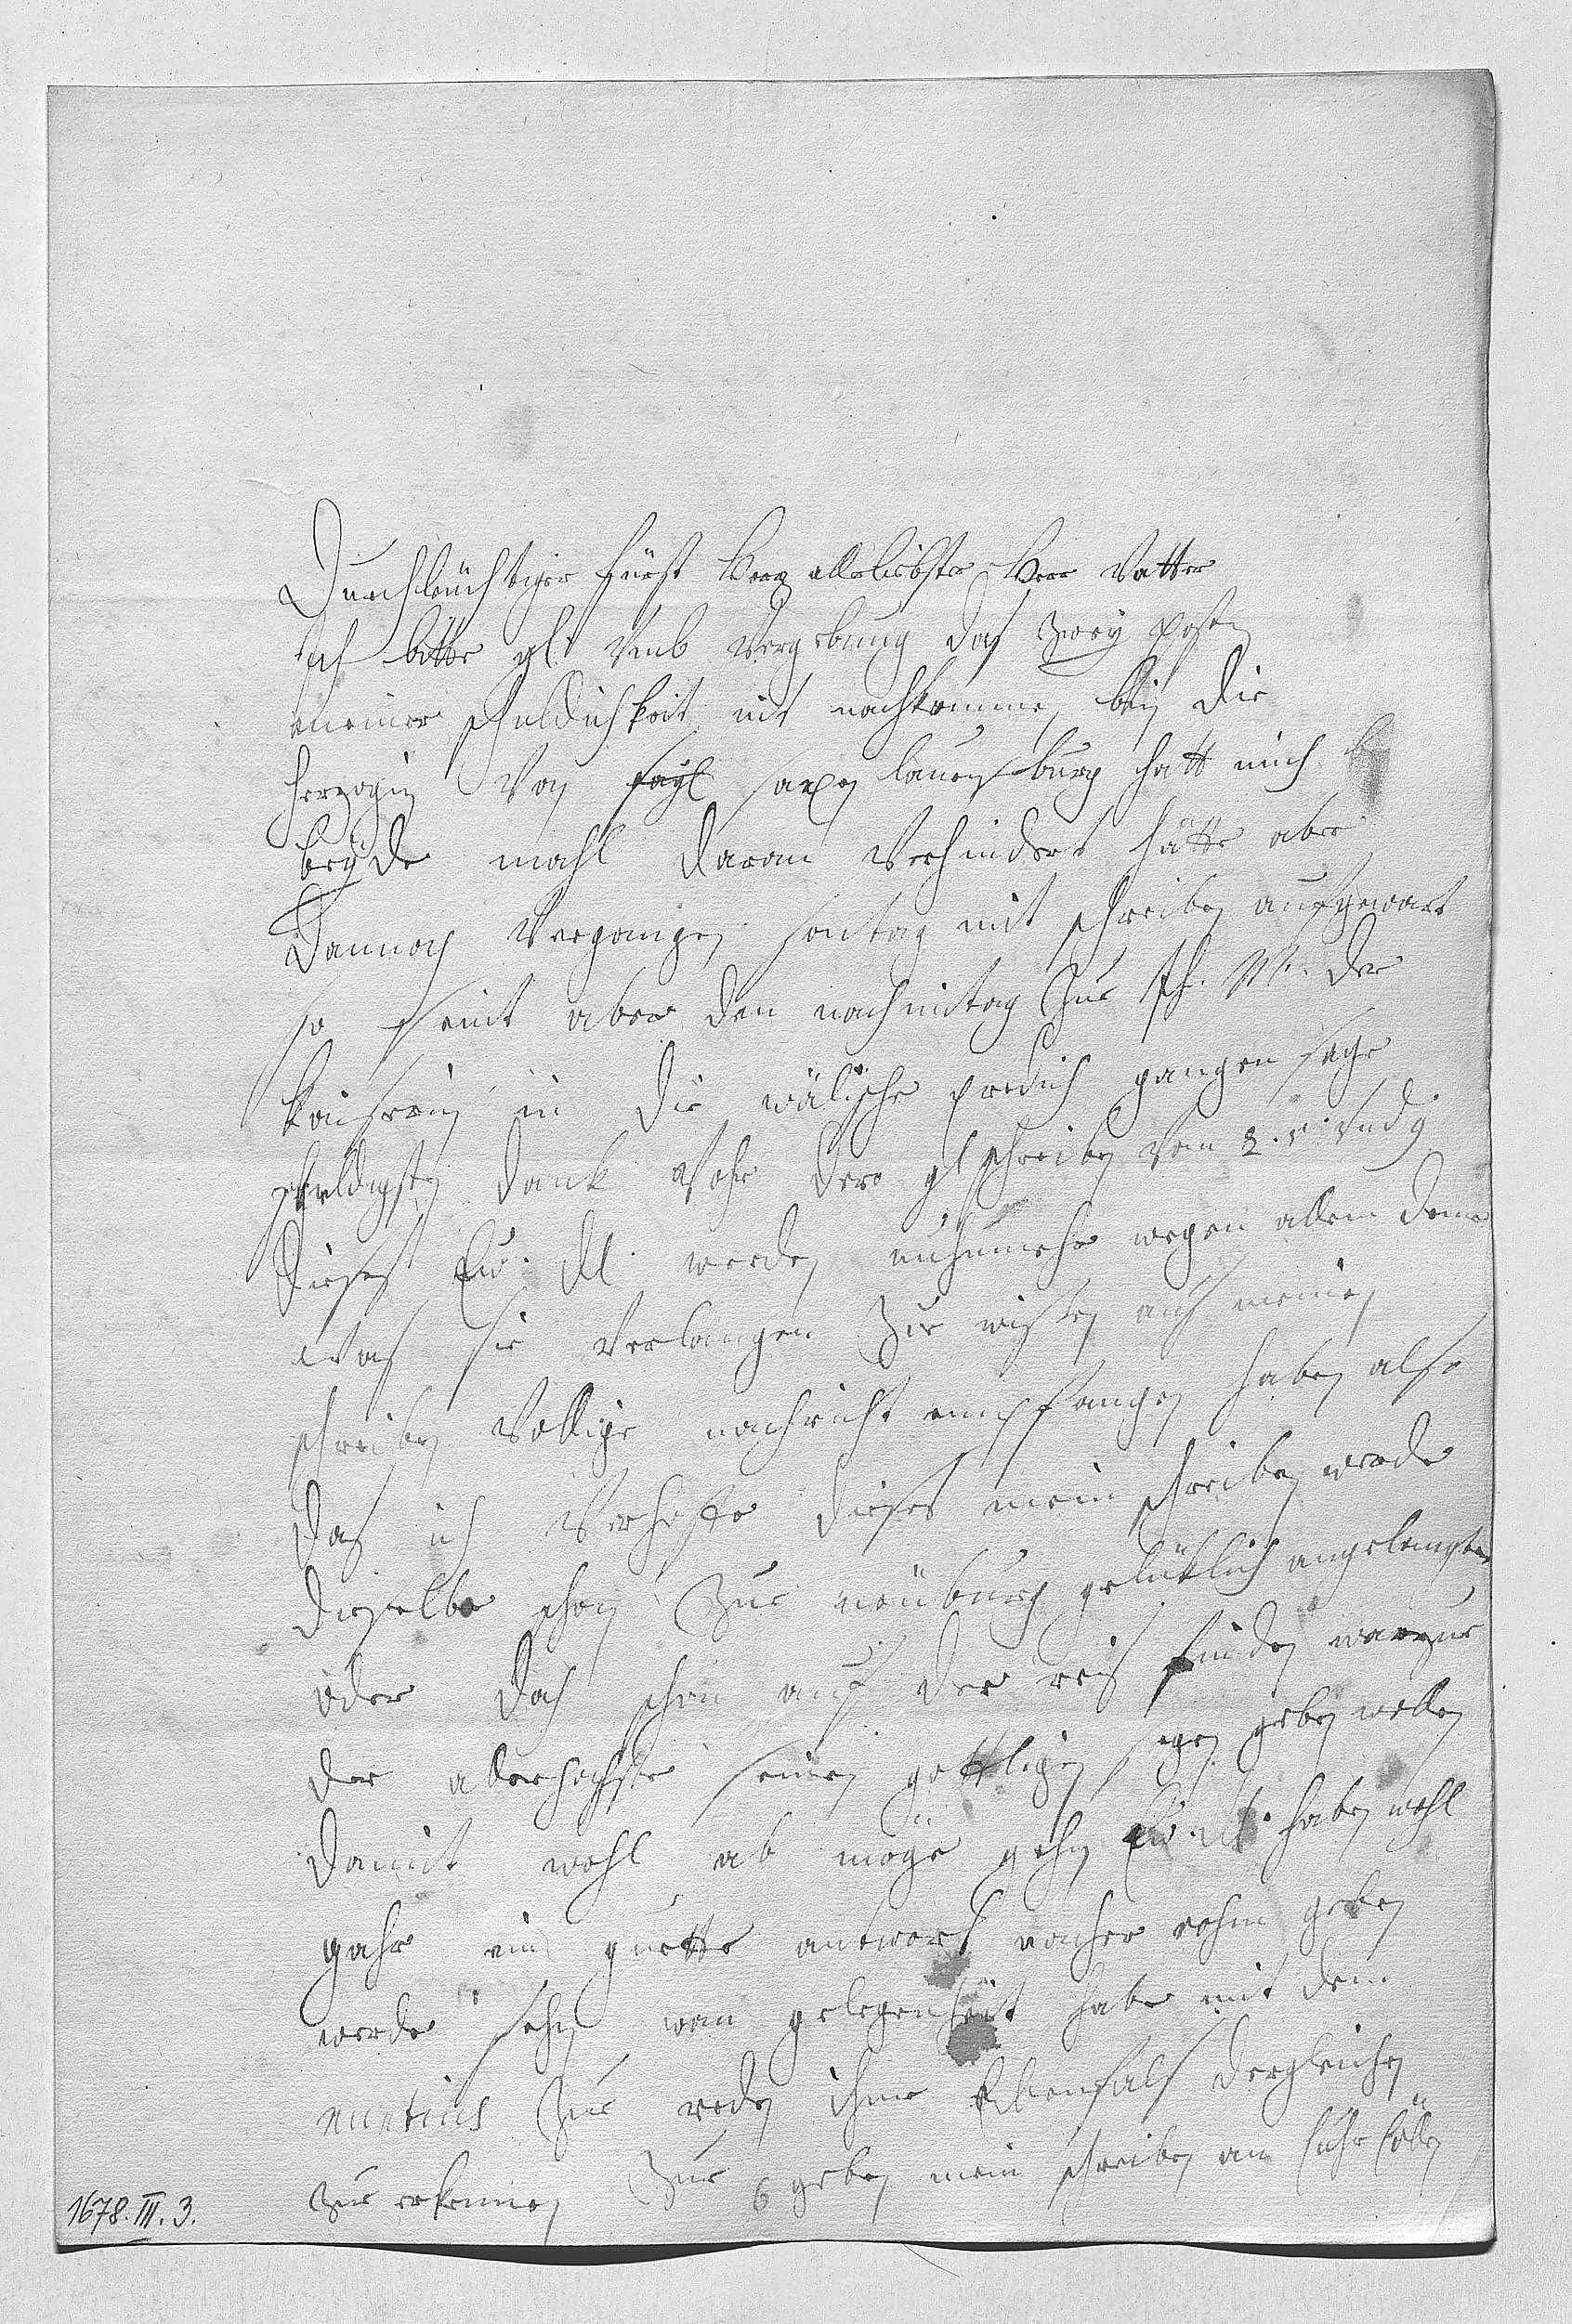 Durchleuchtiger Fürst Herz allerliebster Herr Vatter
Ich bitte gl: vmb vergebung das zwey posten
meiner schuldichkeit nit nachkommen bin die
herzogin von saxen lauenburg hatt mich
beyde mahl daran verhindert hätte aber
dannoch vergangen sontag mit schreiben aufgewart
so seint aber den nachmitag zur M: der
kaiserin in die wälische predich gangen sage
schuldigsten dank vohr dero gl schreiben vom 2. 5. vnd 9
dieses Ew: dl werden nuhnmehr wegen allem deme
was sie verlangen zu wissen auß meinen
schreiben völlige nachricht empfangen haben also
das ich verhoffe dieses mein schreiben werde
dieselbe schon zue neuburg gelüklich angelangter
oder doch schon auf der reis finden warzue
der allerhochste seinen gottligen segen geben wollen
damit wohl ab möge gehen Ew: dl: haben wohl
gahr ein guette antwort nacher rohm geben
werde sehen wan gelegenheit habe mit dem
nuntius zue reden ihme ebenfals dergleichen
zue erkennen zue geben mein schreiben an Cuhr Cöllen
6
1678. III. 3.